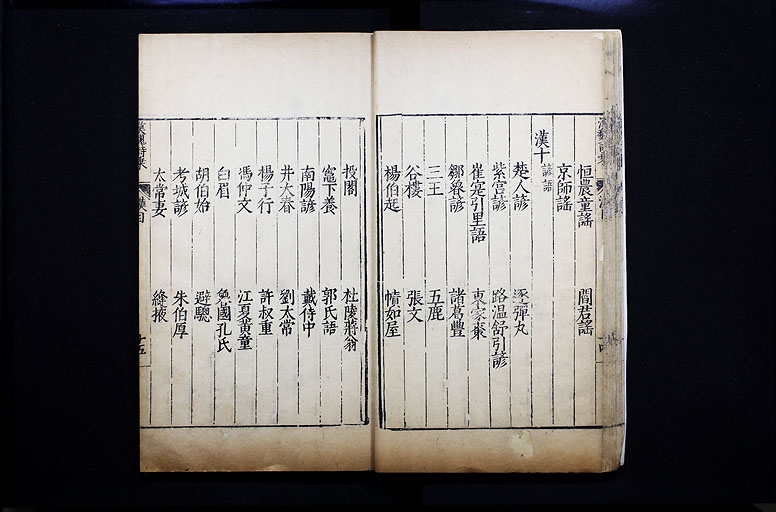 恒農童謠　閻君謠
京師謠
漢十　諺語
楚人諺　逐彈丸
紫宮諺　路温舒引諺
崔寔引里語　東家棗
鄒魯諺　諸葛豐
三王　五鹿
谷樓　張文
楊伯起　幘如屋
投閣　杜陵蔣翁
竈下養　郭氏語
南陽諺　戴侍中
井大春　劉太常
楊子行　許叔重
馮仲文　江夏黄童
白眉　魯國孔氏
胡伯始　避驄
考城諺　朱伯厚
太常妻　縫掖
漢魏詩乘　漢目　十五